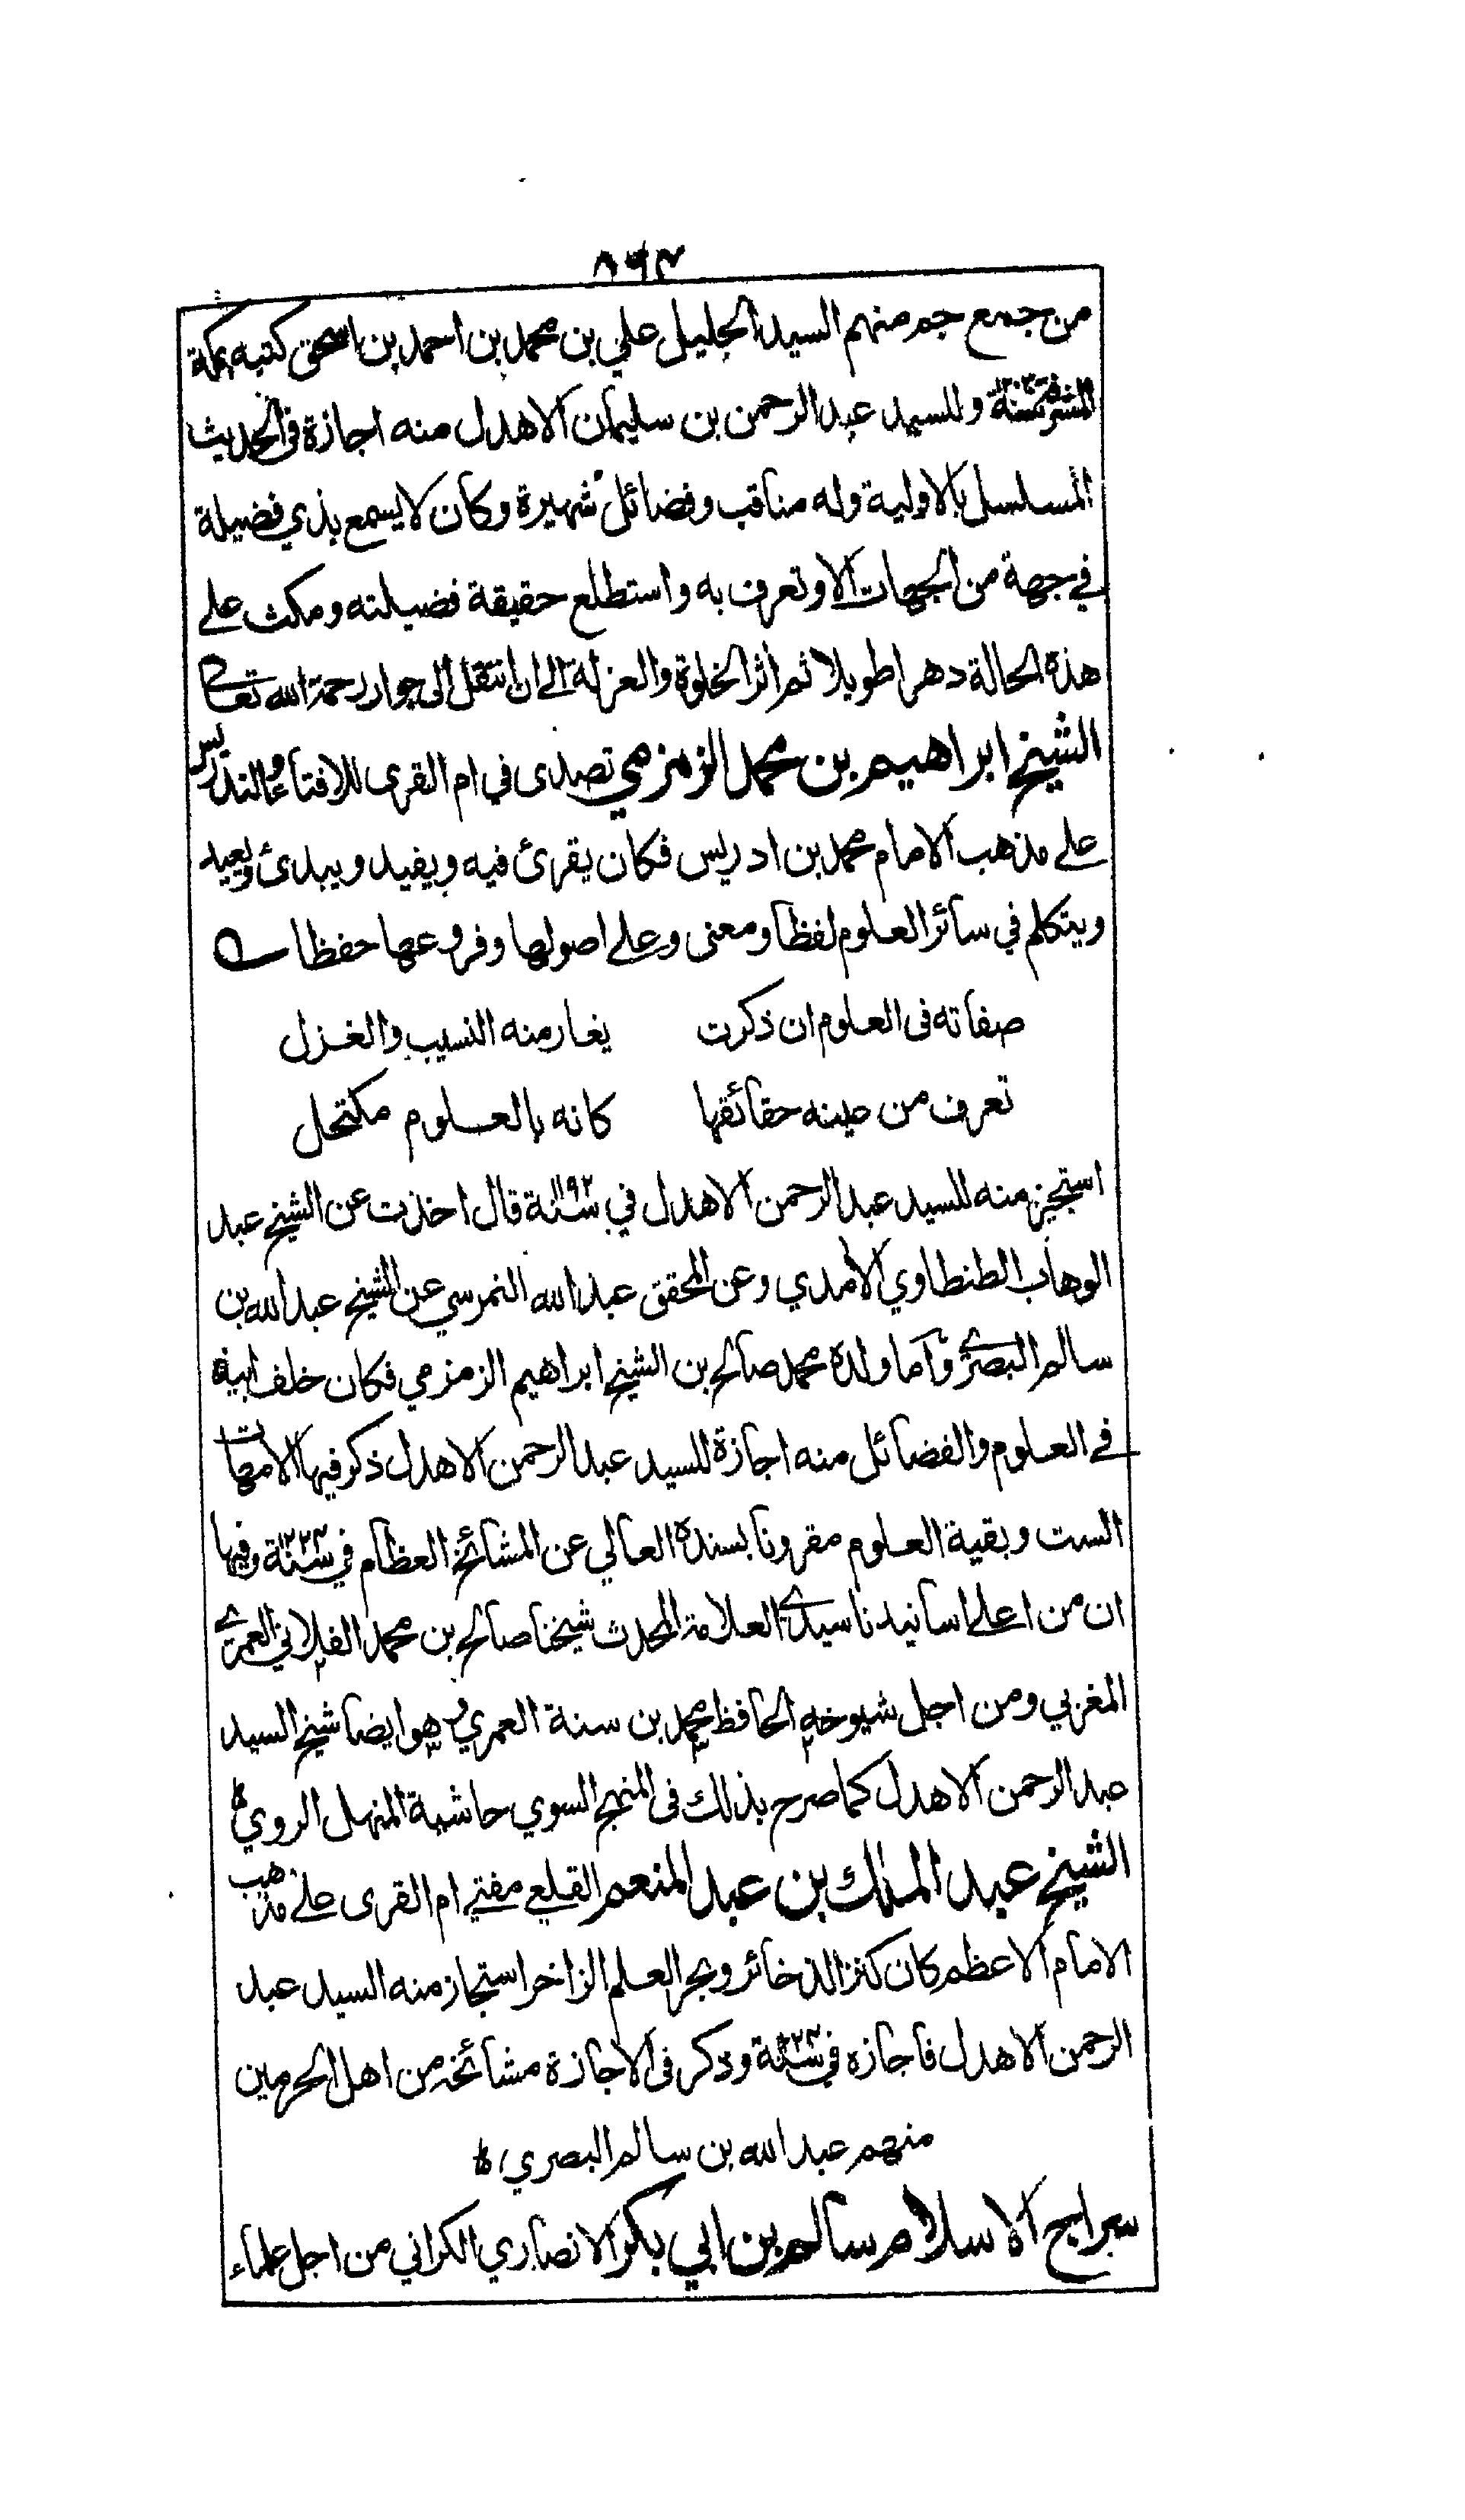 ٨٦٣
من جمع جم منهم السيد الجليل علي بن محمد بن احمد بن اسحق كتبه بمكة
المشرفة سنة وللسيد عبد الرحمن بن سليمان الاهدل منه اجازة في الحديث
المسلسل بالاولية وله مناقب وفضائل شهيرة وكان لا يسمع بذي فضيلة
في جهة من الجهات الا وتعرف به واستطلع حقيقة فضيلته ومكث على
هذه الحالة دهرا طويلا ثم اثر الخلوة والعزلة الى ان انتقل الى جوار رحمة الله تعالى
الشيخ ابراهيم بن محمد الزمزمي تصدى في ام القرى للافتاء والتدريس
على مذهب الامام محمد بن ادريس فكان يقرئ فيه ويفيد ويبدئ ويعيد
ويتكلم في سائر العلوم لفظا ومعنى وعلى اصولها وفروعها حفظا
صفاته في العلوم ان ذكرت يغار منه النسيب والغزل
تعرف من عينه حقائقها كانه بالعلوم مكتحل
استجيز منه للسيد عبد الرحمن الاهدل في سنة ١١٩٢ قال اخذت عن الشيخ عبد
الوهاب الطنطاوي الاحمدي وعن المحقق عبد الله النمرسي عن الشيخ عبد الله بن
سالم البصري واما ولده محمد صالح بن الشيخ ابراهيم الزمزمي فكان خلف ابيه
في العلوم والفضائل منه اجازة للسيد عبد الرحمن الاهدل ذكر فيها الامهات
الست وبقية العلوم مقرونا بسنده العالي عن المشائخ العظام في سنة ١٢٢٣ وفيها
ان من اعلى اسانيدنا سيدي العلامة المحدث شيخنا صالح بن محمد الفلاني العمري
المغربي ومن اجل شيوخه الحافظ محمد بن سنة العمري وهو ايضا شيخ السيد
عبد الرحمن الاهدل كما صرح بذلك في المنهج السوي حاشية المنهل الروي
الشيخ عبد الملك بن عبد المنعم القلعي مفتي ام القرى على مذهب
الامام الاعظم كان كنز الذخائر وبحر العلم الزاخر استجاز منه السيد عبد
الرحمن الاهدل فاجازه في سنة وذكر في الاجازة مشائخه من اهل الحرمين
منهم عبد الله بن سالم البصري
سراج الاسلام سالم بن ابي بكر الانصاري الكراني من اجل علماء